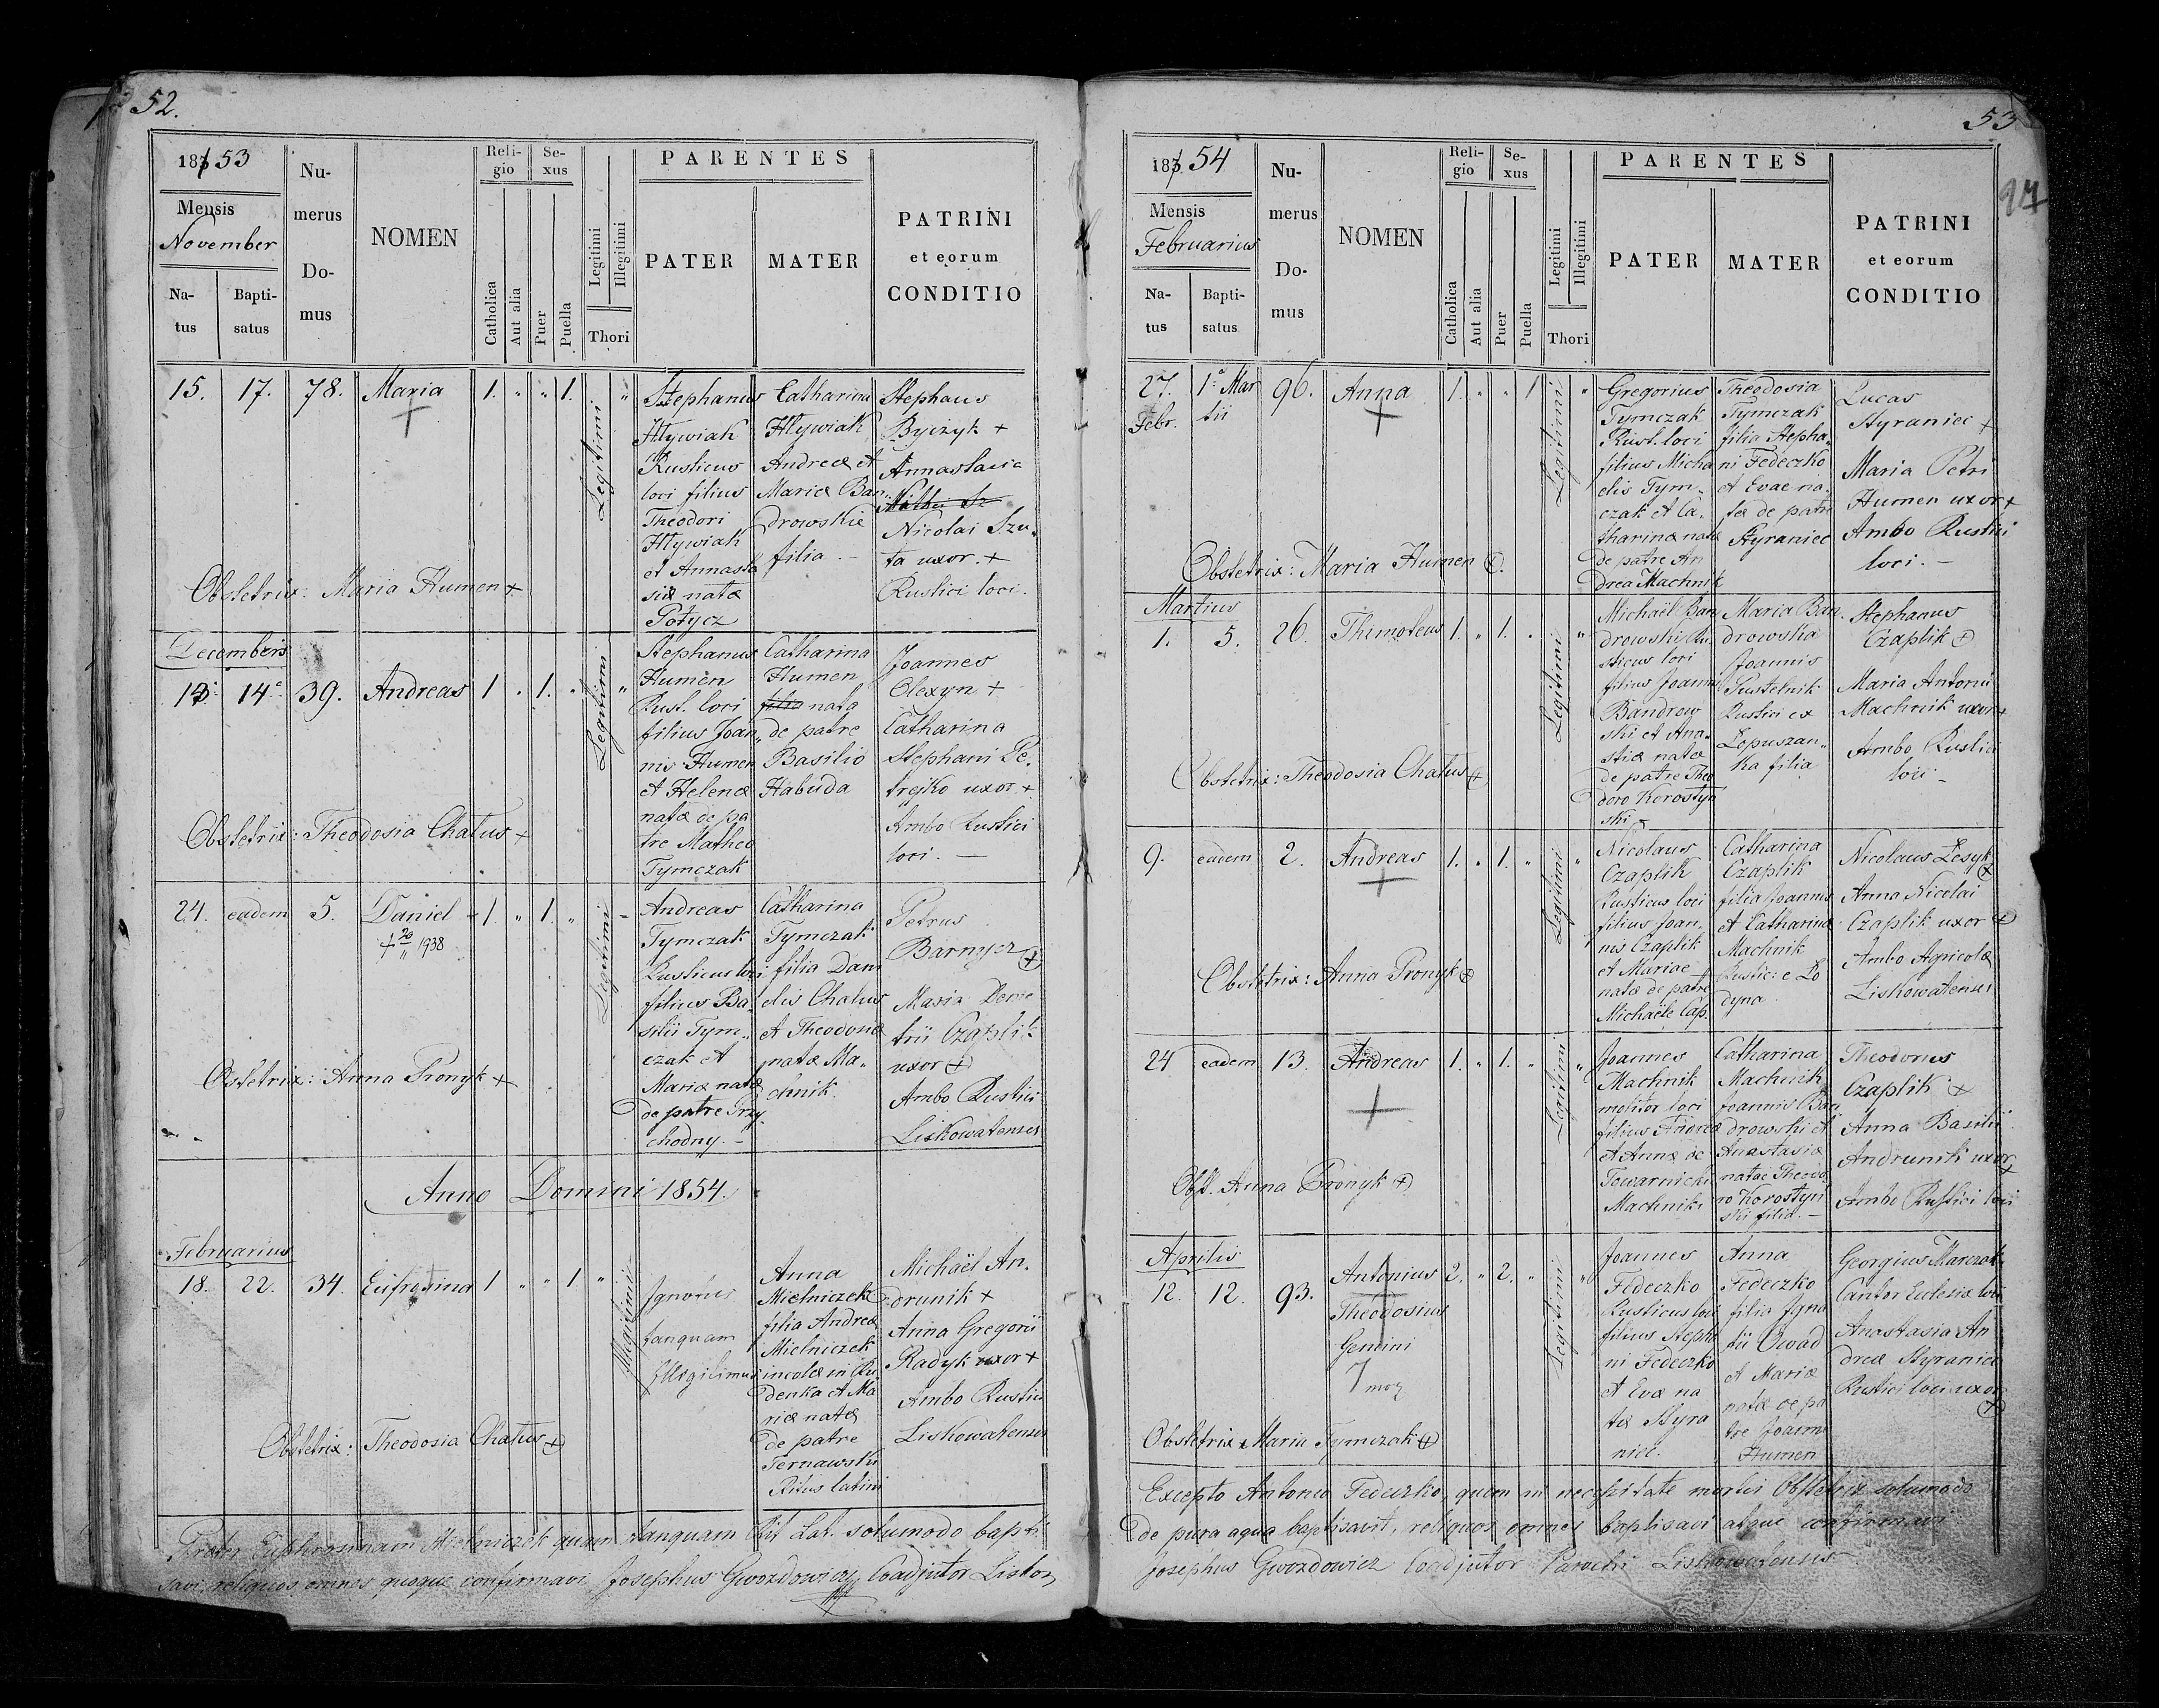 52.
1853
Mensis
November
Na-
tus
Bapti-
satus
Nu-
merus
Do-
mus
NOMEN
Reli-
gio
Catholica
Aut alia
Se-
xus
Puer
Puella
Legitimi
Illegitimi
Thori
PARENTES
PATER
MATER
PATRINI
et eorum
CONDITIO
15. 17. 78. Maria 1. " " 1. Legitimi "
Stephanus
Hlywiak
Rusticus
loci filius
Theodori
Hlywiak
et Annasta
siæ natæ
Potycz
Catharina
Hlywiak
Andreæ et
Mariæ Ban„
drowskie
filia.
Stephanus
Byczyk +
Annastasia
Nicolai Szu„
ta uxor. +
Rustici loci.
Obstetrix: Maria Humen +
Decembris
14. 39. Andreas 1 " 1. " Legitimi "
Stephanus
Humen
Rust. loci
filius Joan„
nis Humen
et Helenæ
natæ de pa
tre Matheo
Tymczak
Catharina
Humen
filia nata
de patre
Basilio
Habuda
Joannes
Olexyn +
Catharina
Stephani Pe„
trejko uxor +
Ambo Rustici
loci. —
Obstetrix: Theodosia Chatus +
24. eadem 5. Daniel 1. " 1. " Legitimi
+ 20 1938
Andreas
Tymczak
Rusticus loci
filius Ba„
silii Tym„
czak et
Mariæ natæ
de patre Przy
chodny. —
Catharina
Tymczak
filia Dani
elis Chatus
et Theodosiæ
natæ Ma„
chnik.
Petrus
Barnycz +
Maria Deme
trii Czaplik
uxor +
Ambo Rustici
Liskowatenses
Obstetrix: Anna Pronyk +
Anno Domini 1854.
Februarius
18. 22. 34. Eufrosina 1 " " 1 " Illegitimi
Ignotus
tanquam
Illegitimus
Anna
Mielniczek
filia Andreæ
Mielniczek
incolæ in Ru
denka et Ma
riæ natæ
de patre
Ternawski
Ritus latini
Michaël An„
drunik +
Anna Gregorii
Radyk uxor +
Ambo Rustici
Liskowatenses
Obstetrix: Theodosia Chatus +
Præter Euphrosinam Mielniczek quam tanquam Rit Lat. solumodo bapti
savi reliquos omnes quoque confirmavi Josephus Gwozdowicz Coadjutor Liskow
53
97
1854
Mensis
Februarius
Na-
tus
Bapti-
satus
Nu-
merus
Do-
mus
NOMEN
Reli-
gio
Catholica
Aut alia
Se-
xus
Puer
Puella
Legitimi
Illegitimi
Thori
PARENTES
PATER
MATER
PATRINI
et eorum
CONDITIO
27. Febr. 1a Mar
tii 96. Anna 1. " " 1 Legitimi "
Gregorius
Tymczak
Rust. loci
filius Micha
elis Tym„
czak et Ca„
tharinæ natæ
de patre An
drea Machnik
Theodosia
Tymczak
filia Stepha„
ni Fedeczko
et Evae na„
tæ de patre
Styraniec
Lucas
Styraniec +
Maria Petri
Humen uxor +
Ambo Rustici
loci. —
Obstetrix: Maria Humen +
Martius
1. 5. 26. Thimoteus 1. " 1. " Legitimi "
Michaël Ban
drowski Ru„
sticus loci
filius Joannis
Bandrow
ski et Ana„
stiæ natæ
de patre Theo
doro Korostyn
ski
Maria Ban
drowska
Joannis
Pustelnik
Rustici ex
Łopuszan„
ka filia
Stephanus
Czaplik +
Maria Antonii
Machnik uxor +
Ambo Rustici
loci —
Obstetrix: Theodosia Chatus +
9. eadem 2. Andreas 1. " 1. " Legitimi "
Nicolaus
Czaplik
Rusticus loci
filius Joan„
nis Czaplik
et Mariae
natæ de patre
Michaële Cap.
Catharina
Czaplik
filia Joannis
et Catharinæ
Machnik
Rustic: e Lo
dyna
Nicolaus Lesyk +
Anna Nicolai
Czaplik uxor +
Ambo Agricolæ
Liskowatenses
Obstetrix: Anna Pronyk +
24 eadem 13. Andreas 1. " 1. " Legitimi "
Joannes
Machnik
molitor loci
filius Andreæ
et Annæ de
Towarnicki
Machniki
Catharina
Machnik
Joannis Ban
drowski et
Anastasiæ
natae Theodo
ro Korostyn
ski filia. —
Theodorus
Czaplik +
Anna Basilii
Andrunik uxor +
Ambo Rustici loci
Obst. Anna Pronyk +
Aprilis
12. 12. 93. Antonius 2. " 2. " Legitimi "
Theodosius
Gemini
Joannes
Fedeczko
Rusticus loci
filius Stepha
ni Fedeczko
et Evæ na
tæ Styra
niec.
Anna
Fedeczko
filia Igna
tii Owad
et Mariæ
natæ de pa
tre Joanne
Humen
Georgius Marczak
Cantor Ecclesiæ loci
Anastasia An
dreæ Styraniec
Rustici loci uxor +
Obstetrix Maria Tymczak +
Excepto Antonio Fedeczko, quem in necessitate mortis Obstetrix solumodo
de pura aqua baptisavit, reliquos omnes baptisavi atque confirmavi
Josephus Gwozdowicz Coadjutor Parochi Liskowatensis